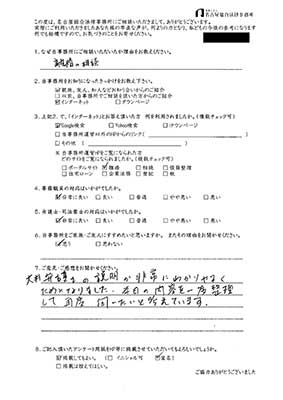 名古屋総合法律事務所
この度は、名古屋総合法律事務所にご相談いただきまして、ありがとうございます。
1. なぜ当事務所にご相談いただいたか理由をお教えください。
離婚の相談
2. 当事務所をお知りになったきっかけをお教え下さい。
□親族、友人、知人などお知り合いからのご紹介
□以前、当事務所でご相談を頂いた方からのご紹介
☑インターネット □タウンページ
3. 上記2.で、(インターネット)とお答え頂いた方 何を利用されましたか。(複数チェック可)
☑Google検索 □Yahoo検索 □タウンページ
□当事務所運営HP以外の中からのリンク(
□その他(
※当事務所運営HPをご覧になられた方
どのサイトをご覧になられましたか。(複数チェック可)
□ポータルサイト ☑離婚 □相続 □債務整理
□住宅ローン □企業法務 □登記 □税
4. 事務職員の対応はいかがでしたか。
☑非常に良い □良い □普通 □やや悪い □悪い
5. 弁護士・司法書士の対応はいかがでしたか。
☑非常に良い □良い □普通 □やや悪い □悪い
6. 当事務所をご家族・ご友人にすすめたいと思いますか。またその理由をお聞かせください。
☑思う □思わない
7. ご意見・ご感想をお聞かせください。
弁護士の説明が非常にわかりやすく
ためになりました。本日の内容を一度整理
して 再度 伺いたいと考えています。
8. ご記入頂いたアンケート用紙をHP等に掲載させていただいてもよろしいでしょうか。
☑掲載してもよい。(□イニシャル可 ☑匿名)
□掲載は控えてほしい。
ご協力ありがとうございました